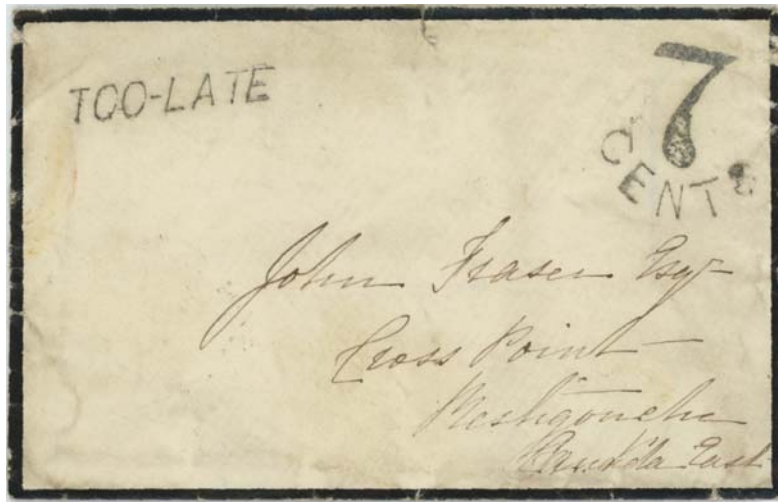 TOO-LATE
7
CENTS
John Fraser Esqr
Cross Point
Restigouche
Canada East